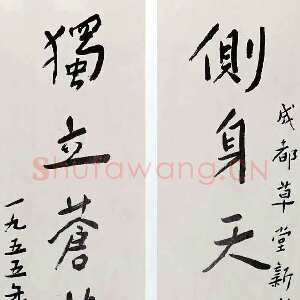 成都草堂新
側身天
獨立蒼
一九五五年
Shufawang.CN